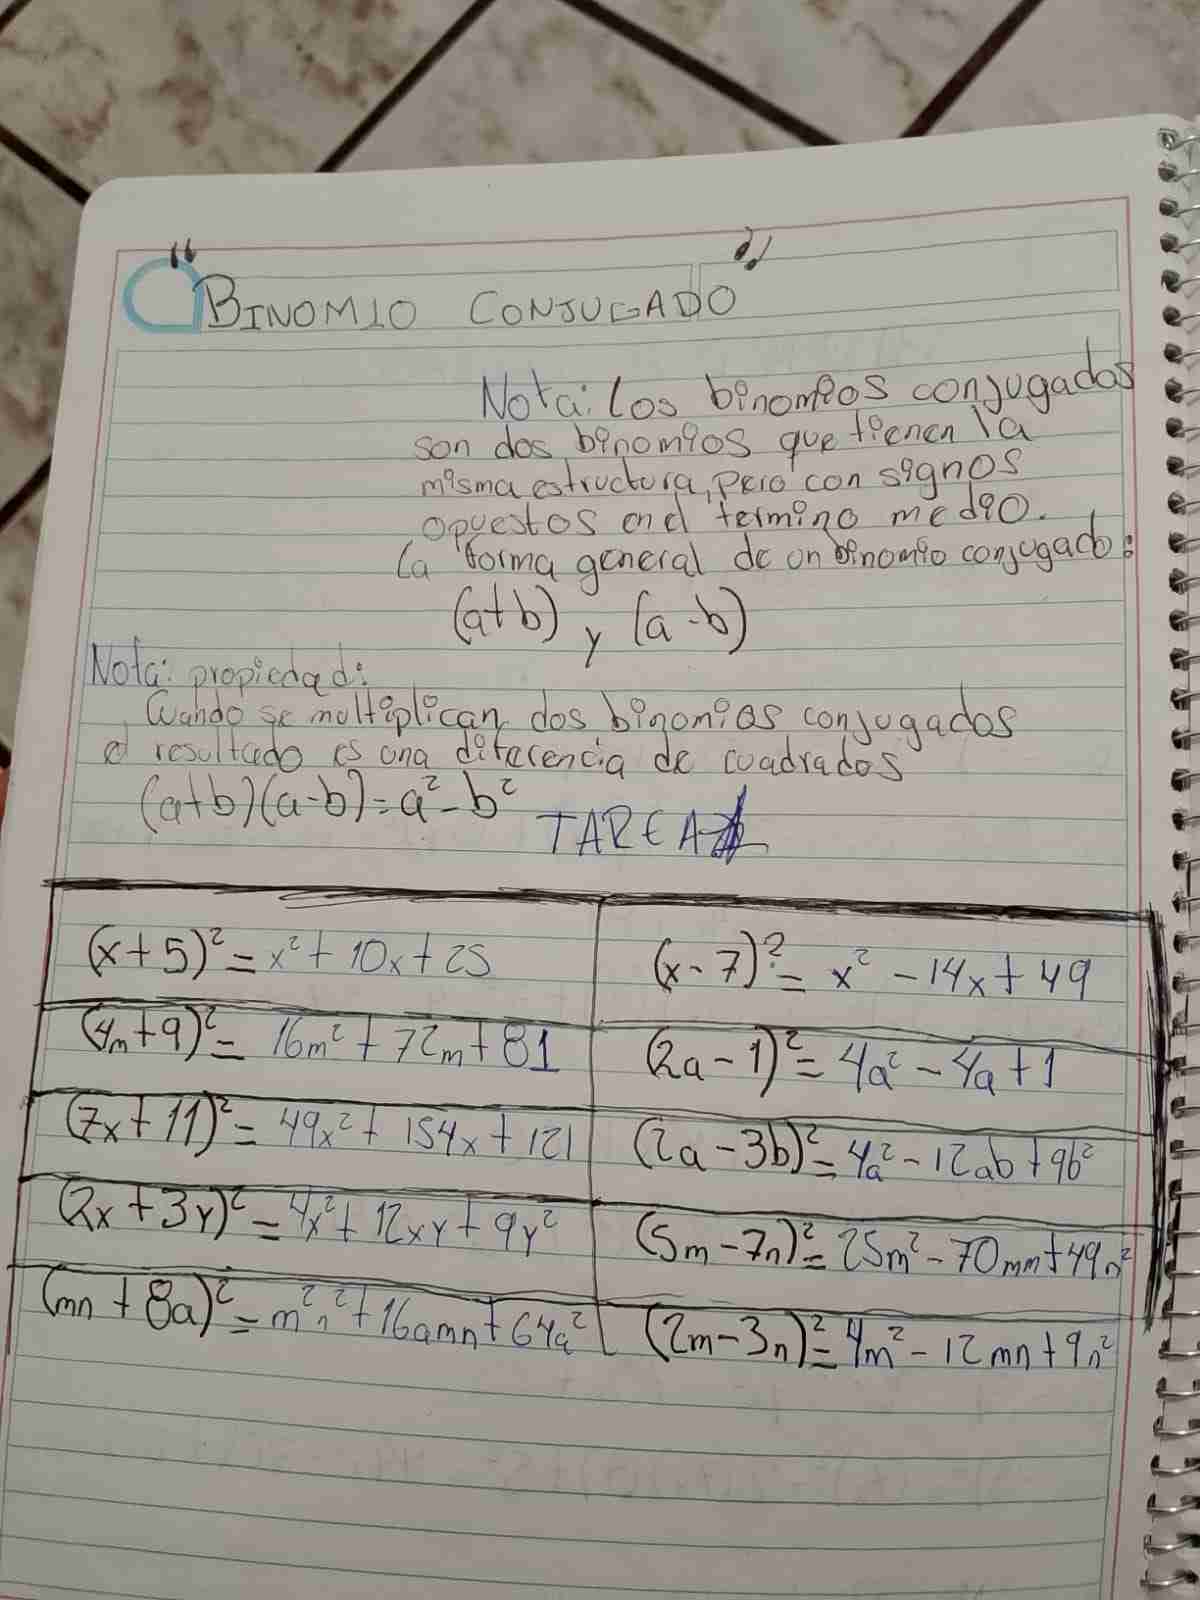 "BINOMIO CONJUGADO"
Nota: Los binomios conjugados
son dos binomios que tienen la
misma estructura, pero con signos
opuestos en el termino medio.
La forma general de un binomio conjugado:
(a+b) y (a-b)
Nota: propiedad:
Cuando se multiplican dos binomios conjugados
el resultado es una diferencia de cuadrados
(a+b)(a-b)=a²-b²
TAREA
(x+5)²=x²+10x+25
(x-7)²=x²-14x+49
(4m+9)²=16m²+72m+81
(2a-1)²=4a²-4a+1
(7x+11)²=49x²+154x+121
(2a-3b)²=4a²-12ab+9b²
(2x+3y)²=4x²+12xy+9y²
(5m-7n)²=25m²-70mn+49n²
(mn+8a)²=m²n²+16amn+64a²
(2m-3n)²=4m²-12mn+9n²